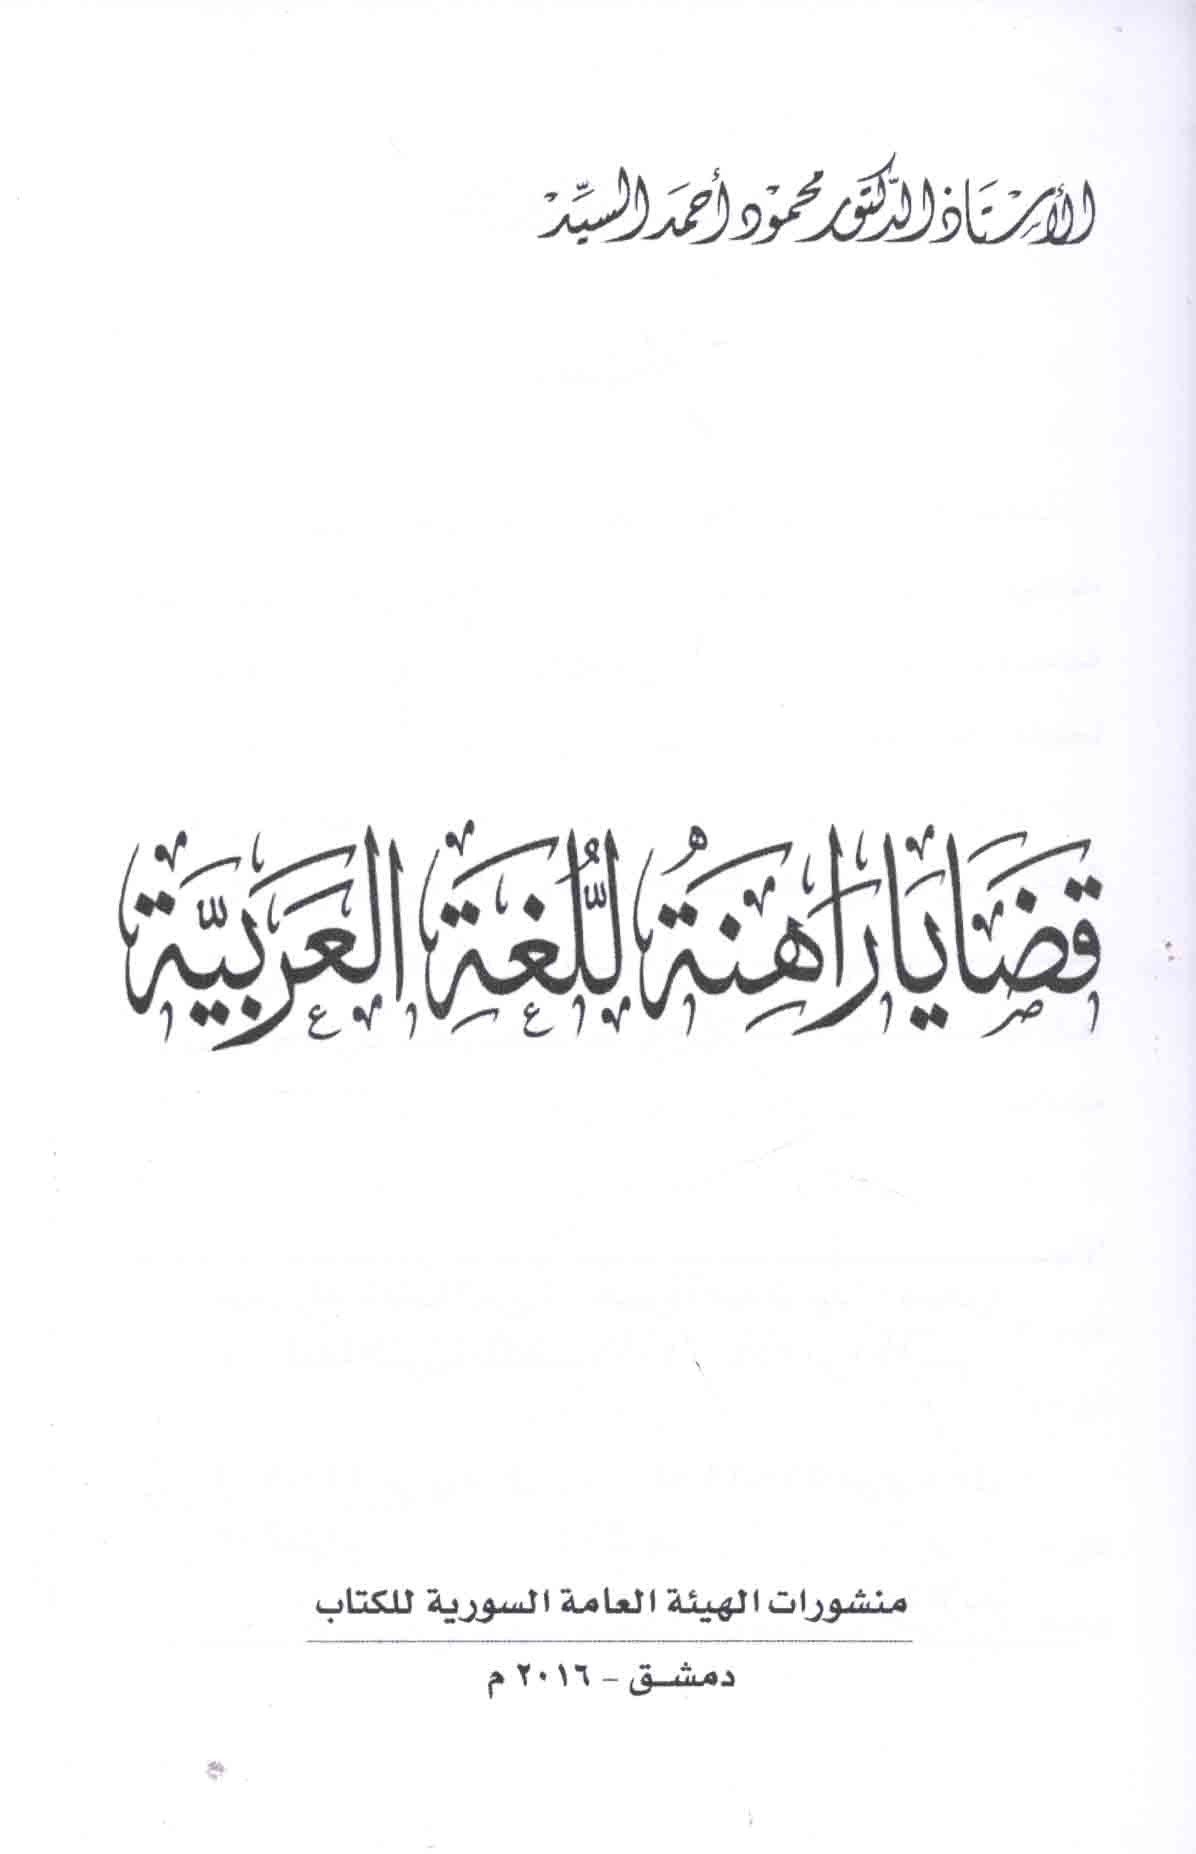 الأستاذ الدكتور محمود أحمد السيّد
قضايا راهنة للّغة العربيّة
منشورات الهيئة العامة السورية للكتاب
دمشق - ٢٠١٦ م